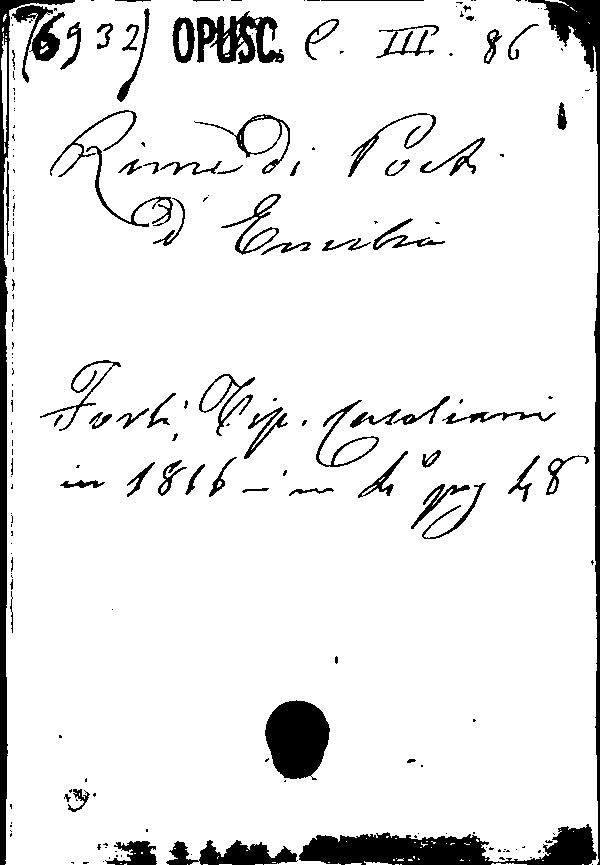 (6932) OPUSC. C. III. 86
Rime di Poeti
d'Emilia
Forlì, Tip. Casaliani
in 1816 - in 4° pag 48